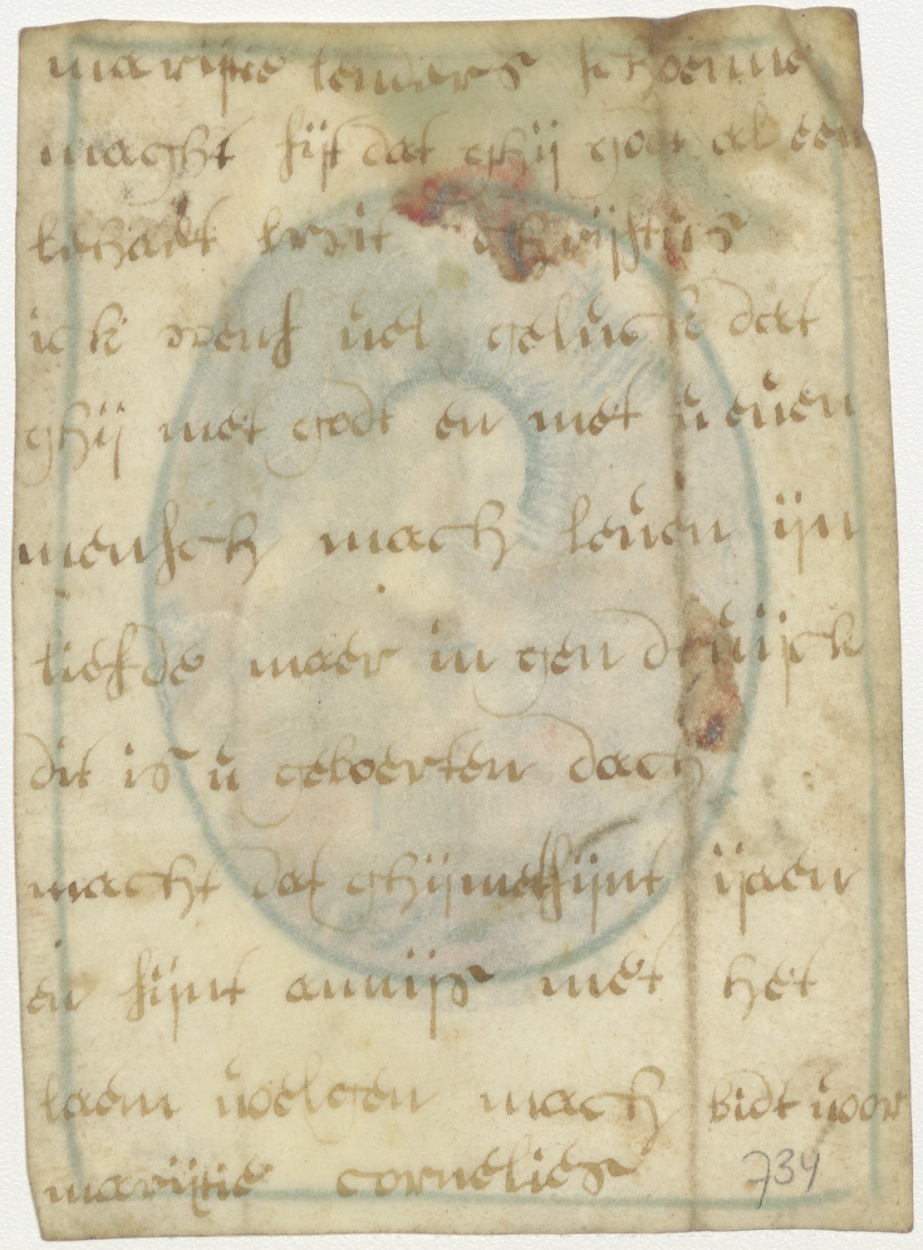 marijtie lenders schoenne
maght sijt dat ghij godt al een
behaet bruit christus
ick wens uel geluck dat
ghij met godt en met u euen
mensch mach leuen ijn
liefde maer in gen druijck
dit is u geboerten dach
macht dat ghij met sijnt ijaen
en sijnt annijs met het
laem uvolgen mach bidt uvor
marijtie cornelies
734